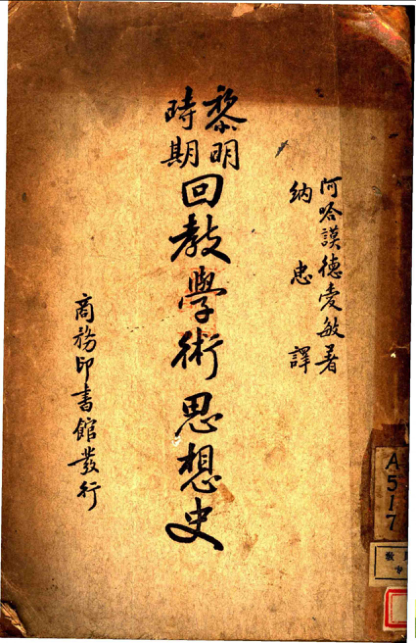 阿哈謨德愛敏著
納忠譯
黎明時期
回教學術思想史
商務印書館發行
A517